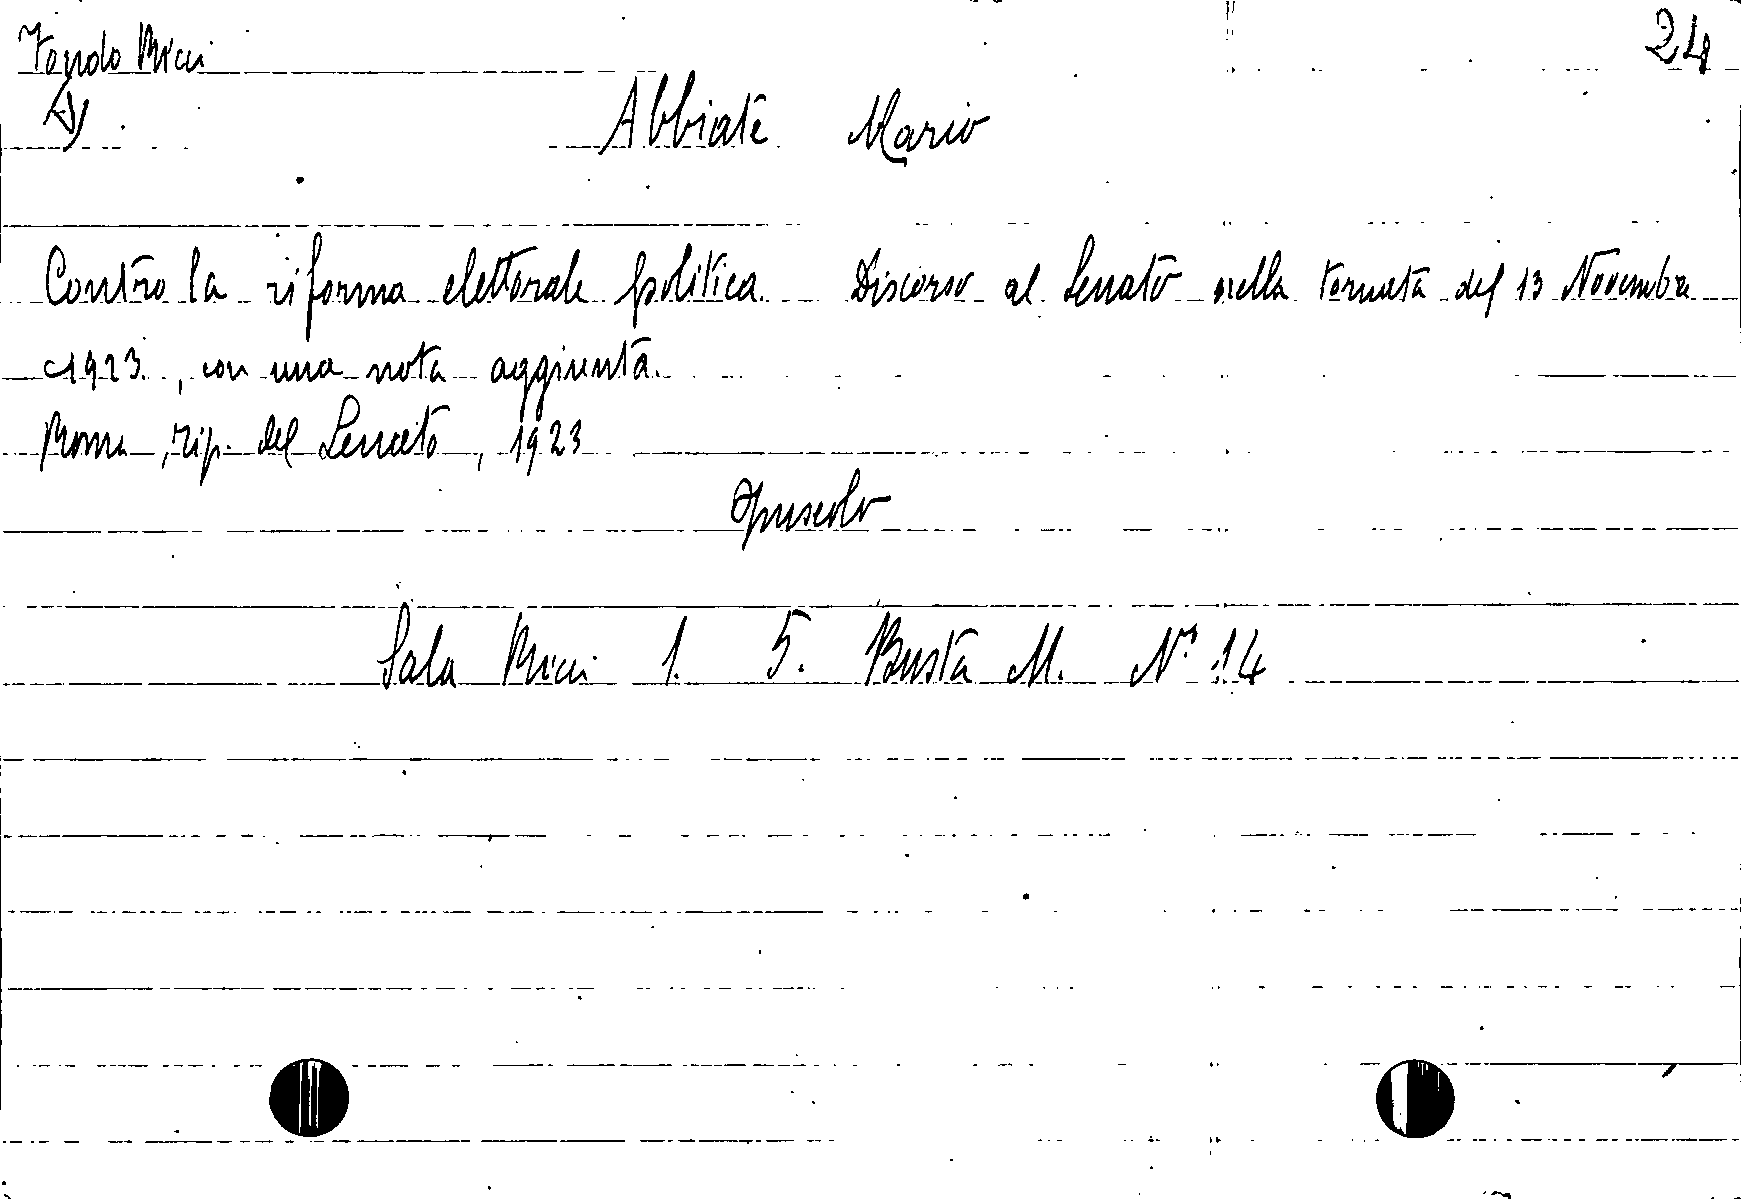 Fondo Ricci
24
A)
Abbiate Mario
Contro la riforma elettorale politica. Discorso al Senato nella tornata del 13 Novembre
1923., con una nota aggiunta.
Roma, tip. del Senato, 1923
Opuscolo
Sala Ricci 1. 5. Busta M. N° 14